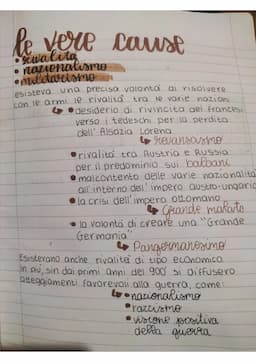 le vere cause
• rivalità
• nazionalismo
• militarismo
esisteva una precisa volontà di risolvere
con le armi le rivalità tra le varie nazioni
• desiderio di rivincita dei francesi
verso i tedeschi per la perdita
dell'Alsazia Lorena
revanscismo
• rivalità tra Austria e Russia
per il predominio sui balbani
• malcontento delle varie nazionalità
all'interno dell'impero austro-ungarico
• la crisi dell'impero ottomano
Grande malato
• la volontà di creare una "Grande
Germania"
Pangermanesimo
Esisterano anche rivalità di tipo economico
In più, sin dai primi anni del 900' si diffusero
atteggiamenti favorevoli alla guerra, come:
• nazionalismo
• razzismo
• visione positiva
della guerra